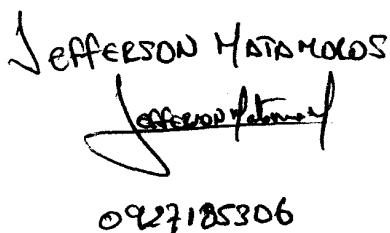 JEFFERSON MATAMOROS
Jefferson Matamoros
0927185306